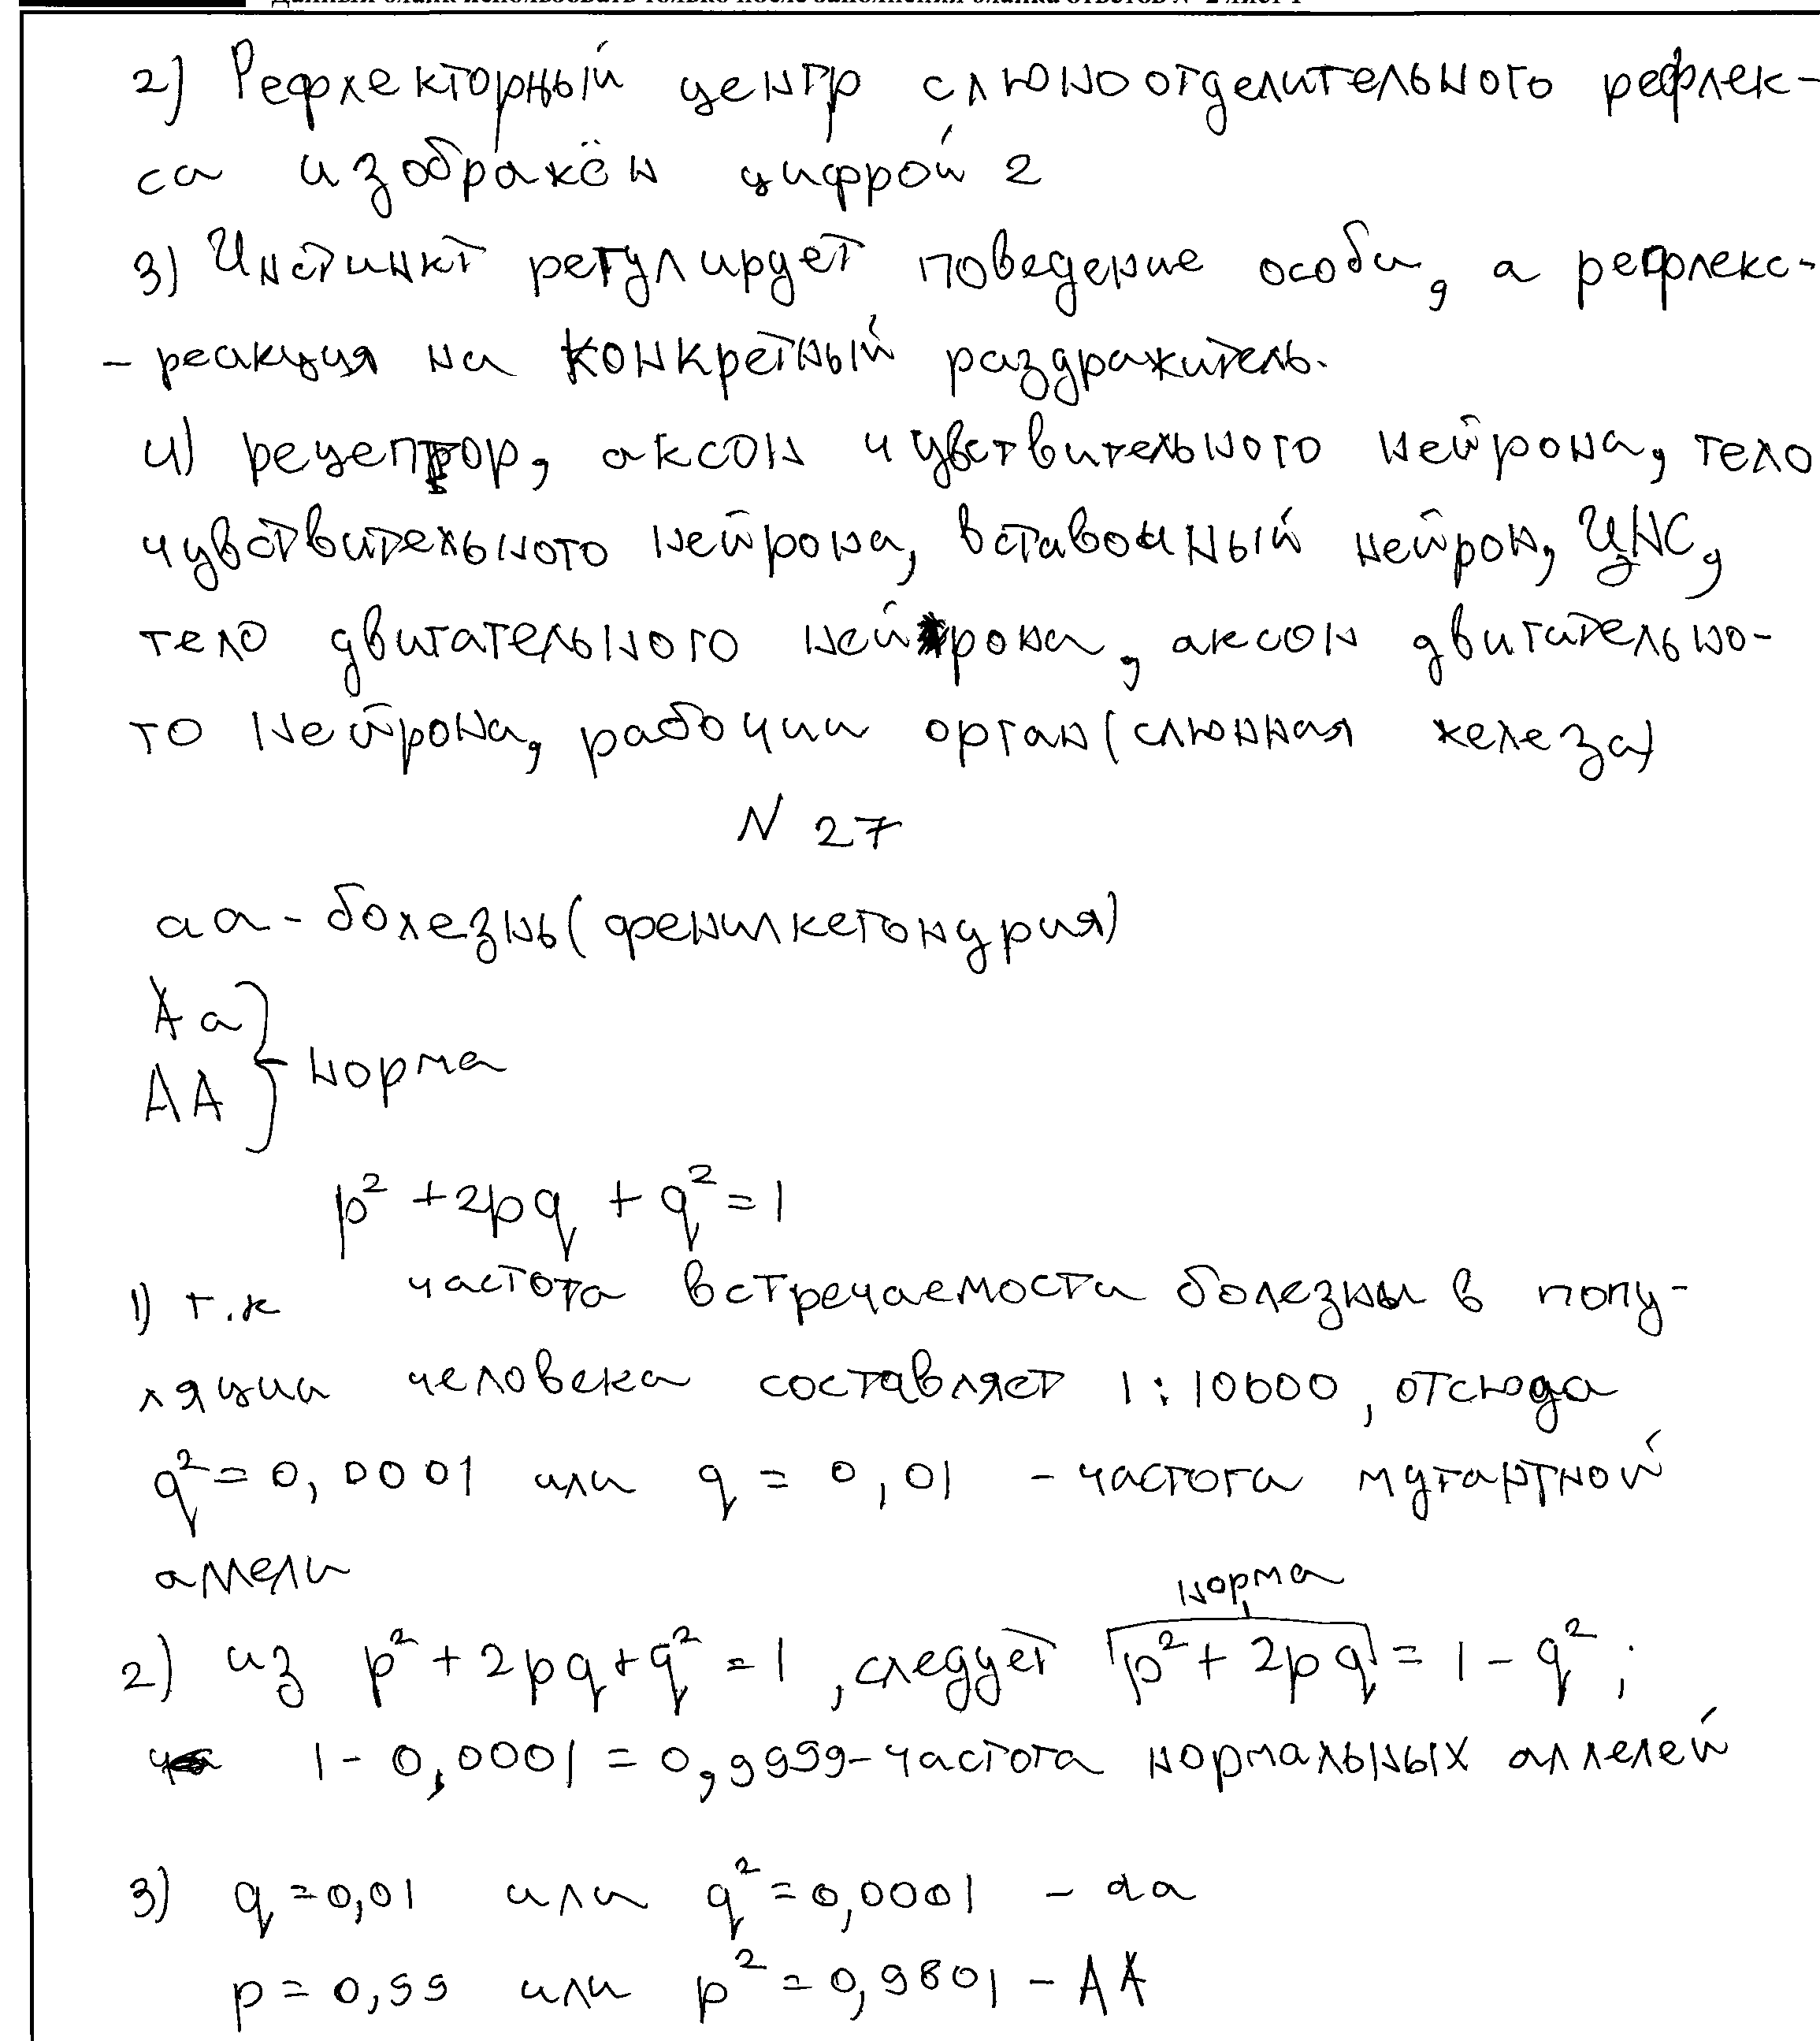 2) Рефлекторный центр слюноотделительного рефлек-
са изображён цифрой 2
3) Инстинкт регулирует поведение особи, а рефлекс-
- реакция на конкретный раздражитель.
4) рецептор, аксон чувствительного нейрона, тело
чувствительного нейрона, вставочный нейрон, ЦНС,
тело двигательного нейрона, аксон двигательно-
го нейрона, рабочии орган (слюнная железа)
N 27
аа - болезнь (фенилкетонурия)
Аа
АА } норма
p² + 2pq + q² = 1
1) т.к частота встречаемости болезны в попу-
ляции человека составляет 1 : 10000, отсюда
q² = 0,0001 или q = 0,01 - частота мутартной
аллели
норма
2) из p² + 2pq + q² = 1, следует p² + 2pq = 1 - q²;
1 - 0,0001 = 0,9999 - частота нормальных аллелей
3) q = 0,01 или q² = 0,0001 - аа
p = 0,99 или p² = 0,9801 - АА